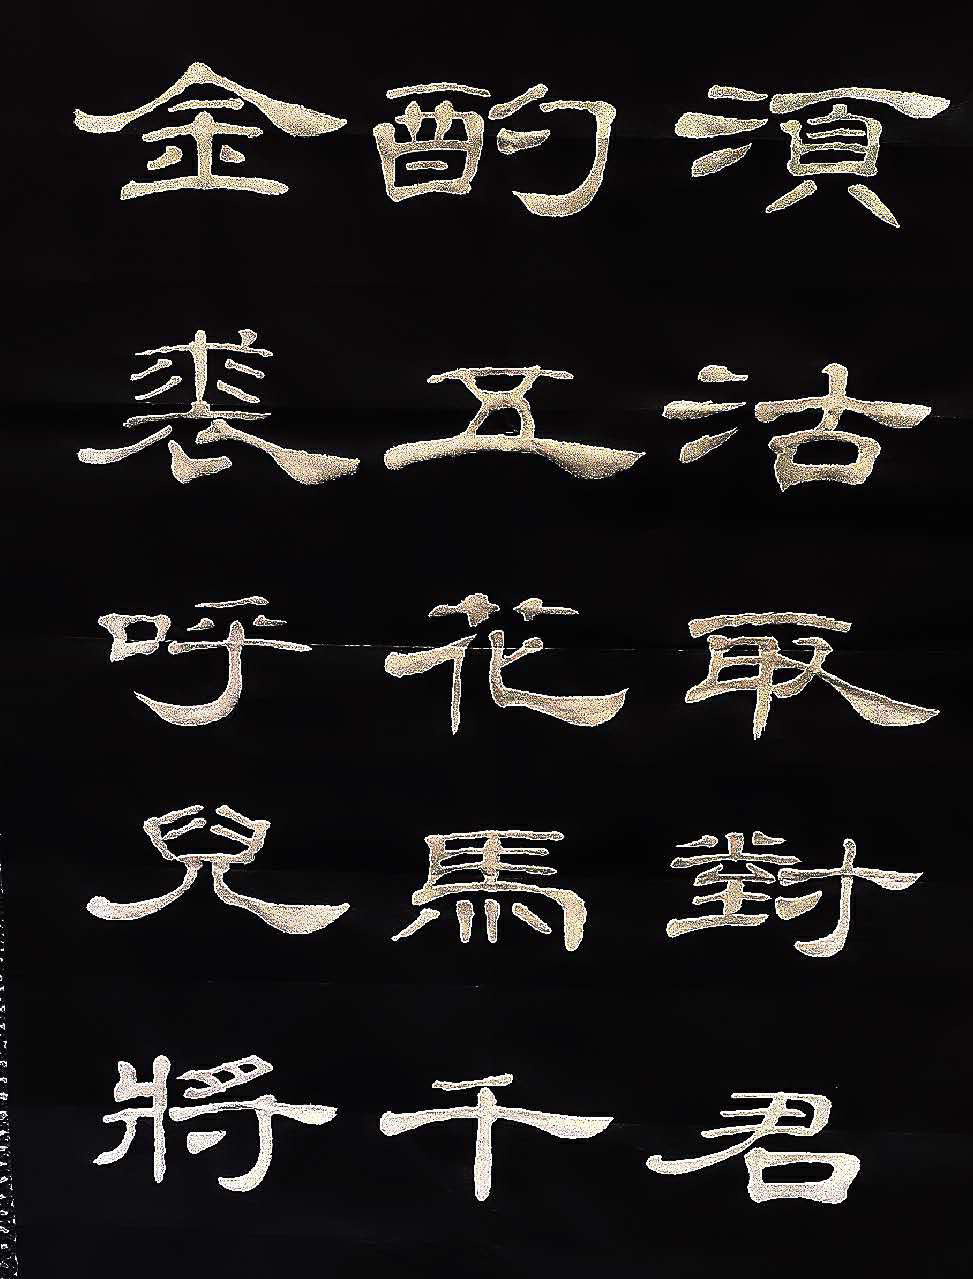 湏沽取對君
酌五花馬千
金裘呼兒將